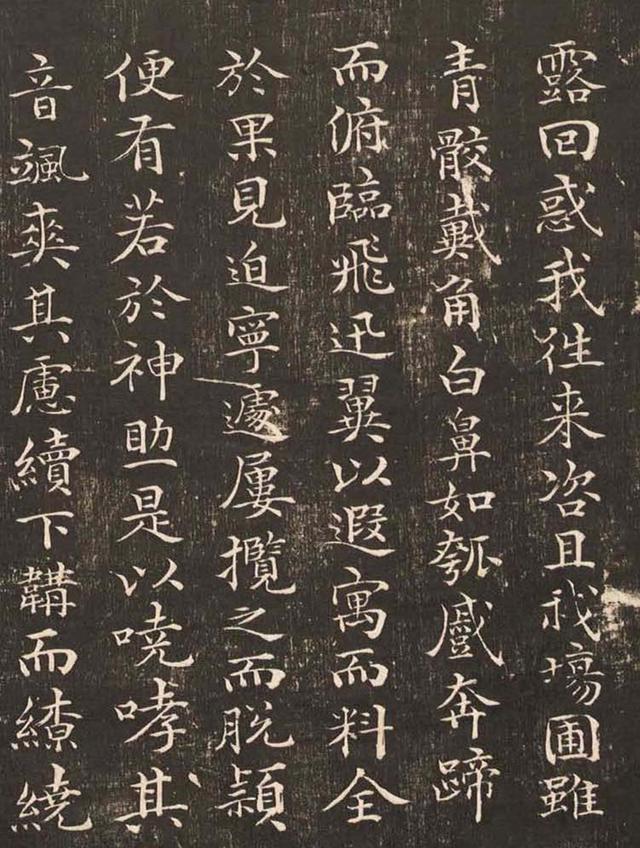 露回惑我徃来咨且我塲圃雖
青骹戴角白鼻如瓠戲奔蹄
而俯臨飛迅翼以遐寓而料全
於果見迫寧遽屢攬之而脱穎
便有若於神助是以嘵哮其
音颯爽其慮續下韝而繚繞